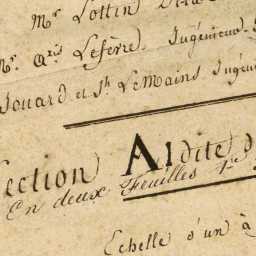 Mr Lottin
Mr. Aris Lefèvre. Ingénieur
Jouard et Sh LeMains Ingén
ection Aldite d
En deux Feuilles 1re
Echelle d'un à